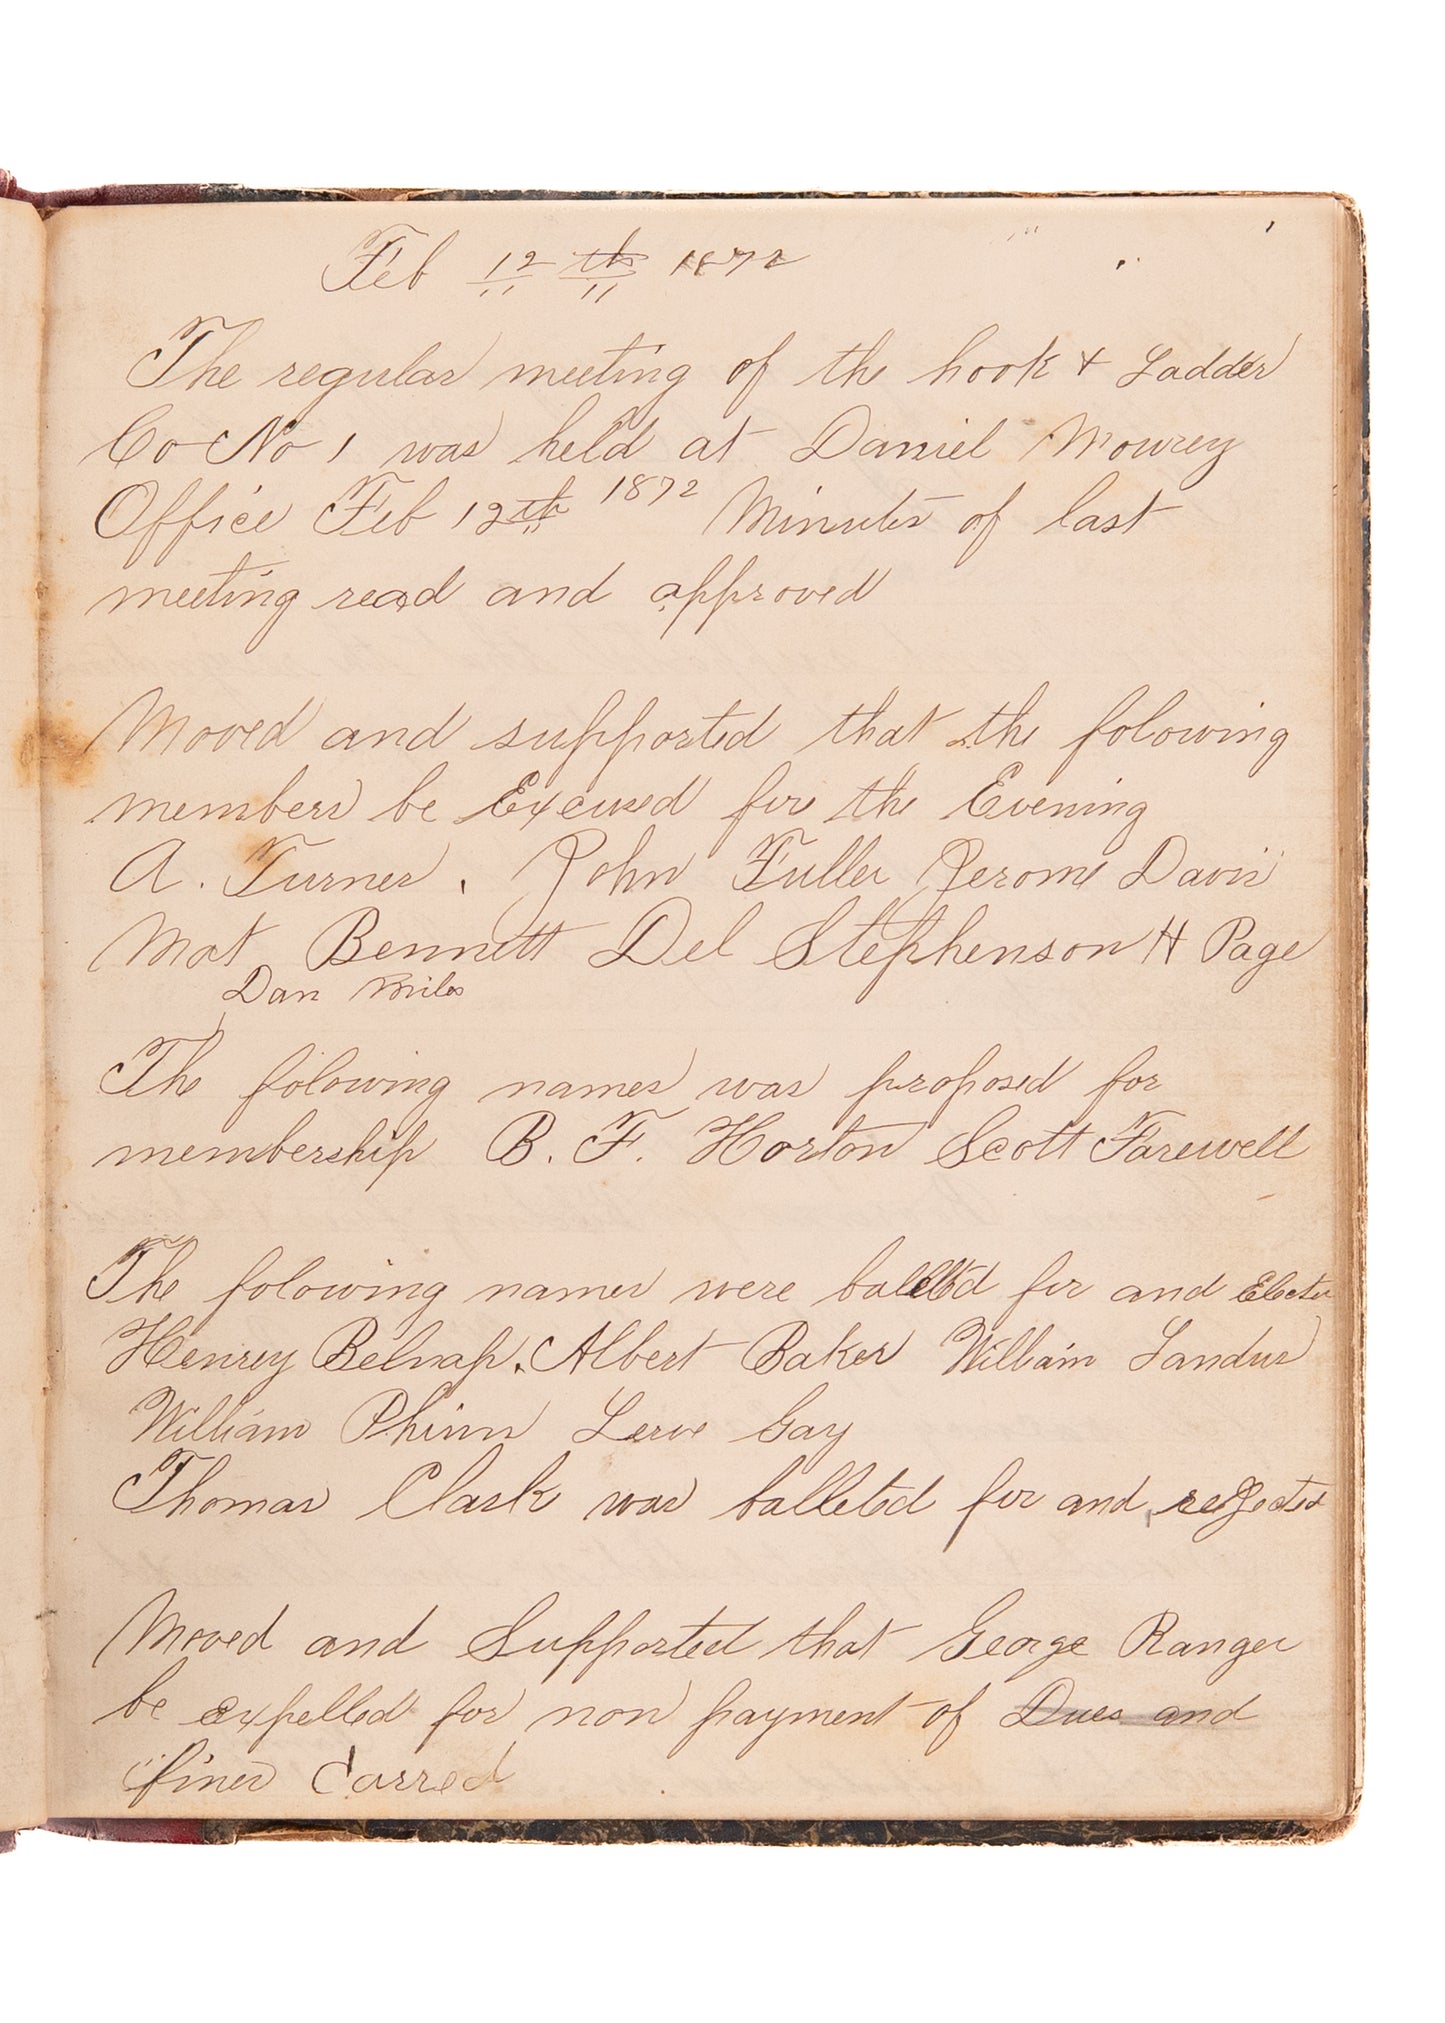 Feb 12th 1872
The regular meeting of the hook & Ladder
Co No 1 was held at Daniel Mowrey
Office Feb 12th 1872 Minutes of last
meeting read and approved
Moved and supported that the folowing
members be Excused for the Evening
A. Turner. John Fuller Jerome Davis
Mat Bennett Del Stephenson H Page
Dan Miles
The folowing names was proposed for
membership B. F. Horton Scott Farewell
The folowing names were balleted for and Elected
Henrey Belnap. Albert Baker William Sandus
William Phinn Lerve Gay
Thomas Clark was balleted for and regected
Moved and Supported that George Ranger
be expelled for non payment of Dues and
fines Carred